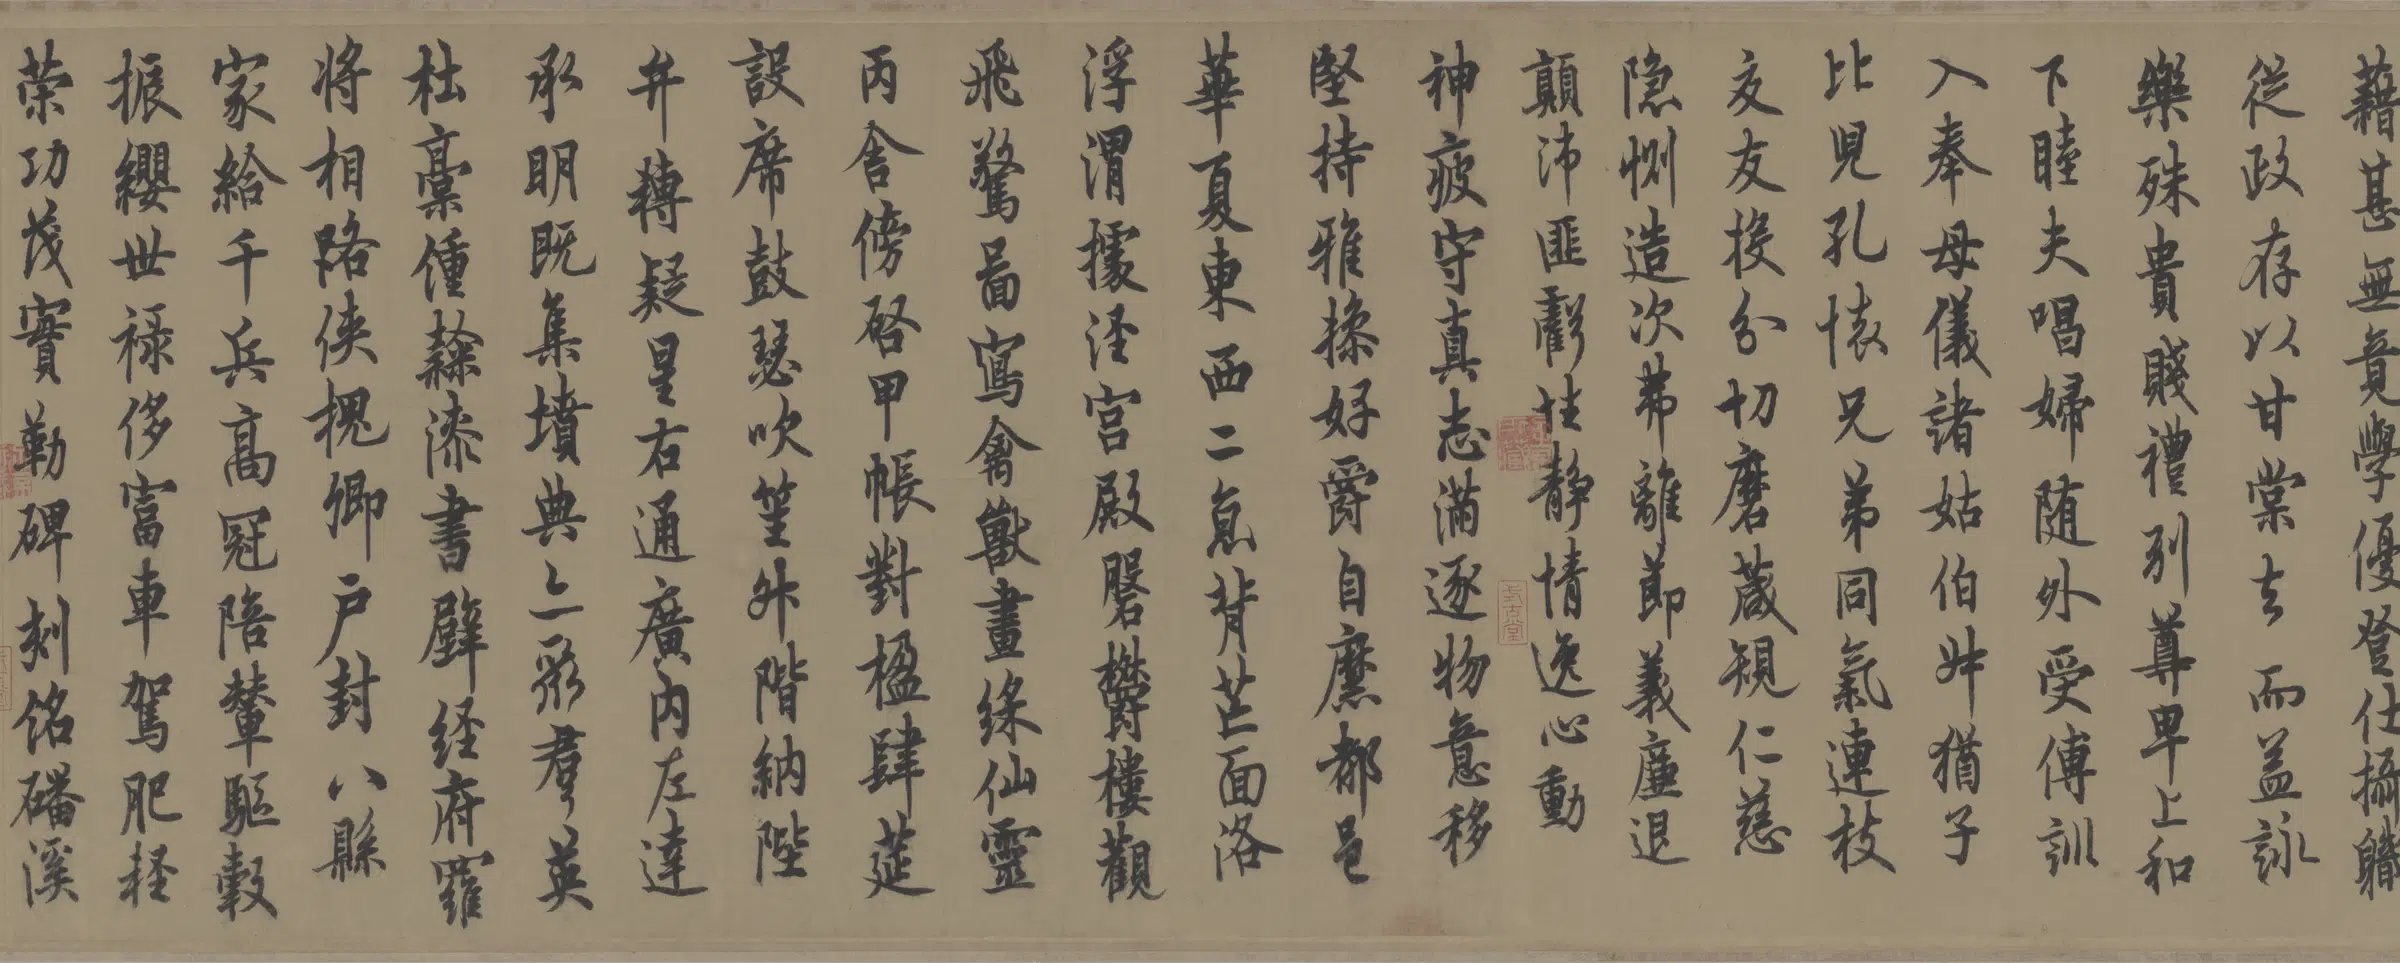 藉甚無竟學優登仕攝職
從政存以甘棠去而益詠
樂殊貴賤禮別尊卑上和
下睦夫唱婦随外受傅訓
入奉母儀諸姑伯叔猶子
比兒孔懐兄弟同氣連枝
交友投分切磨葴規仁慈
隐惻造次弗離節義廉退
顛沛匪虧性静情逸心動
神疲守真志滿逐物意移
堅持雅操好爵自縻都邑
華夏東西二京背芒面洛
浮渭據涇宮殿磐欝樓觀
飛驚啚寫禽獸畫綵仙靈
丙舍傍啓甲帳對楹肆筵
設席鼓瑟吹笙升階納陛
弁轉疑星右通廣内左達
承明既集墳典亦聚群英
杜稾鍾隸漆書壁経府羅
将相路俠槐卿户封八縣
家給千兵高冠陪輦驅轂
振纓世禄侈富車駕肥軽
策功茂實勒碑刻銘磻溪
式古堂